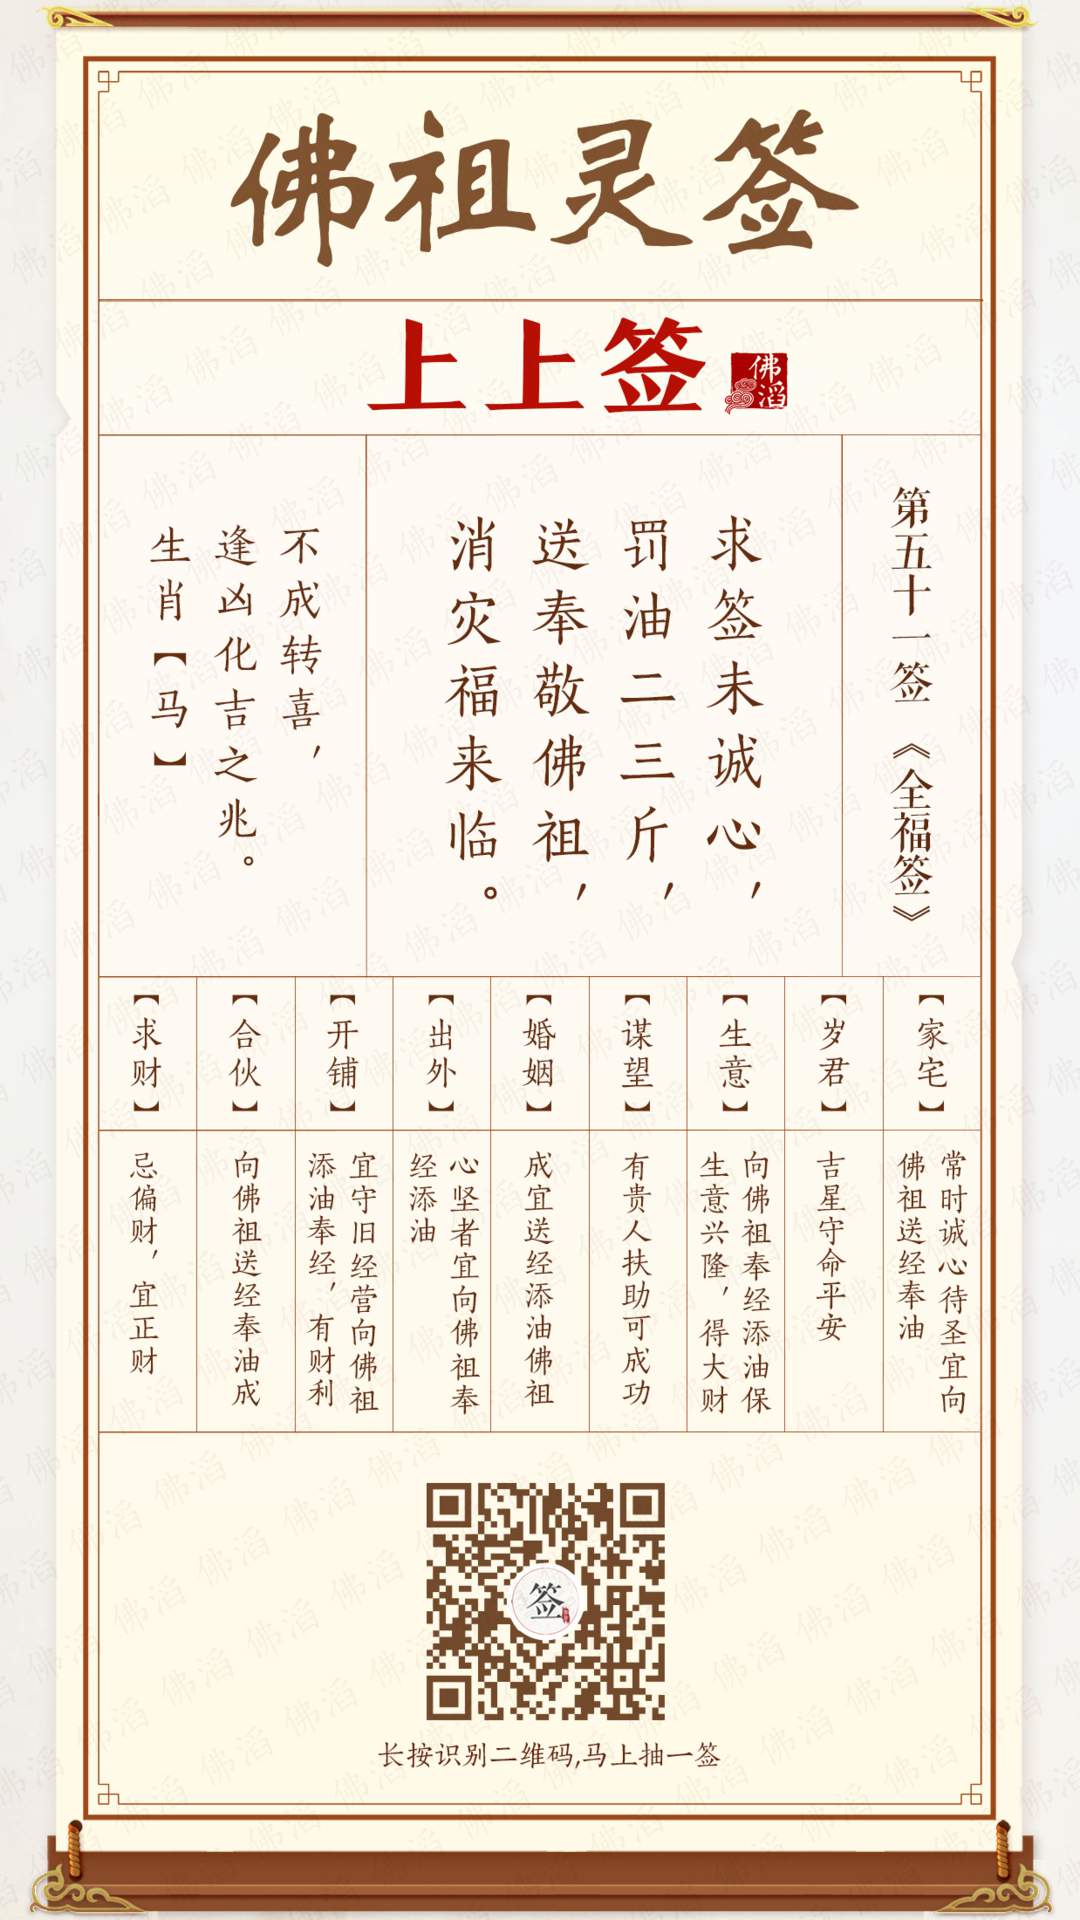 佛祖灵签
上上签
佛滔
第五十一签 《全福签》
求签未诚心，
罚油二三斤，
送奉敬佛祖，
消灾福来临。
不成转喜，
逢凶化吉之兆。
生肖【马】
【家宅】
常时诚心待圣宜向
佛祖送经奉油
【岁君】
吉星守命平安
【生意】
向佛祖奉经添油保
生意兴隆，得大财
【谋望】
有贵人扶助可成功
【婚姻】
成宜送经添油佛祖
【出外】
心坚者宜向佛祖奉
经添油
【开铺】
宜守旧经营向佛祖
添油奉经，有财利
【合伙】
向佛祖送经奉油成
【求财】
忌偏财，宜正财
签
长按识别二维码,马上抽一签